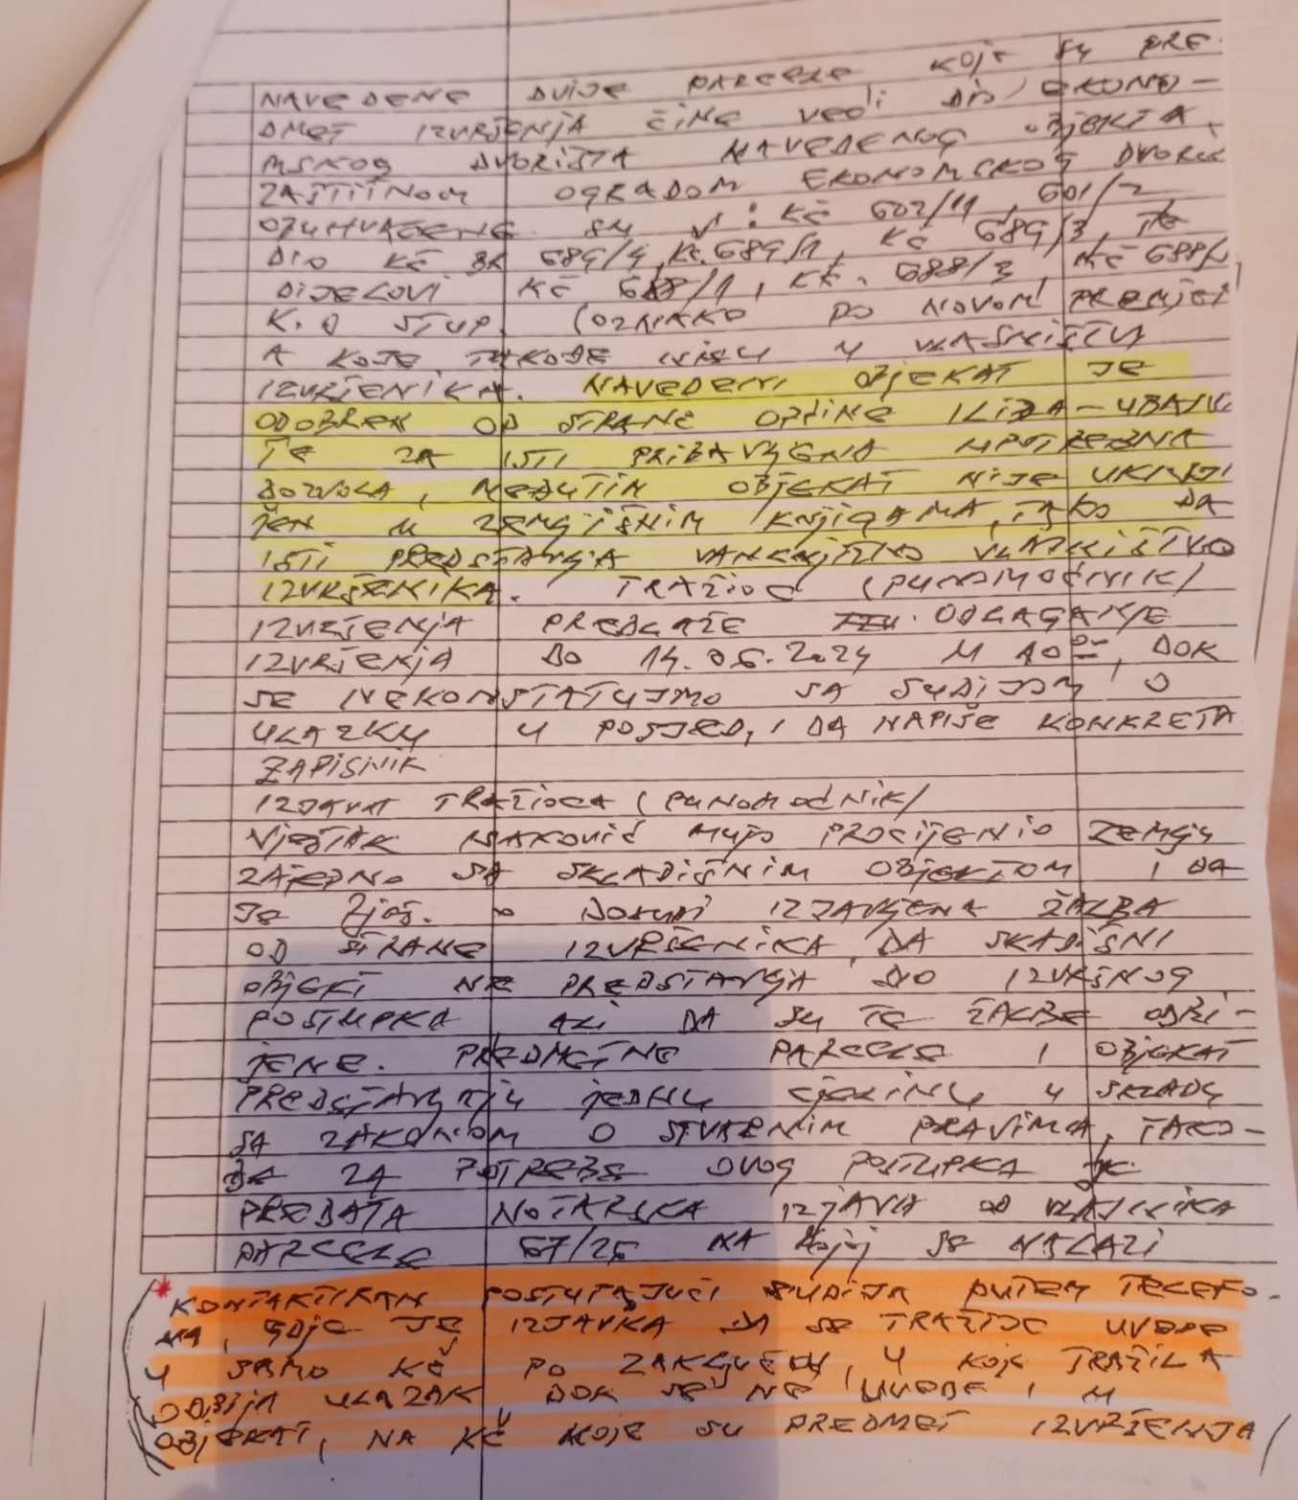 NAVEDENE DVIJE PARCELE KOJE SU PRE-
DMET IZVRŠENJA ČINE VEĆI DIO EKONO-
MSKOG DVORIŠTA NAVEDENOG OBJEKTA,
ZAŠTITNOM OGRADOM EKONOMSKOG DVORIŠ
OBUHVAĆENE SU I: KČ 602/11, 601/2
DIO KČ BR 689/4, Kč. 689/1, KČ 689/3, TE
DIJELOVI KČ 688/1, KČ. 688/3, KČ 688/
K.O STUP. (OZNAKA PO NOVOM PREMJE
A KOJE TAKOĐE NISU U VLASNIŠTVU
IZVRŠENIKA. NAVEDENI OBJEKAT JE
ODOBREN OD STRANE OPĆINE ILIDŽA-
TE ZA ISTI PRIBAVLJENA UPOTREBNA
DOZVOLA, MEĐUTIM OBJEKAT NIJE UKNJI
ŽEN U ZEMLJIŠNIM KNJIGAMA, TAKO DA
ISTI PREDSTAVLJA VANKNJIŽNO VLASNIŠTVO
IZVRŠENIKA. TRAŽIOC (PUNOMOĆNIK/
IZVRŠENJA PREDLAŽE ODLAGANJE
IZVRŠENJA DO 14.06.2024 U 10⁰⁰, DOK
SE NE KONSTATUJMO SA SUDIJOM O
ULAZKU U POSJED, I DA NAPIŠE KONKRETA
ZAPISNIK
IZJAVA TRAŽIOCA (PUNOMOĆNIK/
VJEŠTAK MUJO PROCIJENIO ZEMLJU
ZAJEDNO SA SKLADIŠNIM OBJEKTOM I DA
JE IZJAVLJENA ŽALBA
OD STRANE IZVRŠENIKA DA SKADIŠNI
OBJEKT NE PREDSTAVLJA DIO IZVRŠNOG
POSTUPKA, ALI DA SU TE ŽALBE ODBI-
JENE. PREDMETNE PARCELE I OBJEKAT
PREDSTAVLJAJU JEDNU CJELINU U SKLADU
SA ZAKONOM O STVARNIM PRAVIMA, TAKO-
ĐE ZA POTREBE OVOG POSTUPKA JE
PREDATA NOTARSKA IZJAVA OD VLASNIKA
PARCELE 67/26 NA KOJOJ SE NALAZI
* KONTAKTIRAN POSTUPAJUĆI SUDIJA PUTEM TELEFO-
NA, GDJE JE IZJAVKA DA SE TRAŽIOC UVEDE
U SAMO KČ PO ZAKLJUČKU, U KOJE TRAŽILA
ODBIJA ULAZAK DOK SE NE UVEDE I U
OBJEKAT, NA KČ KOJE SU PREDMET IZVRŠENJA/